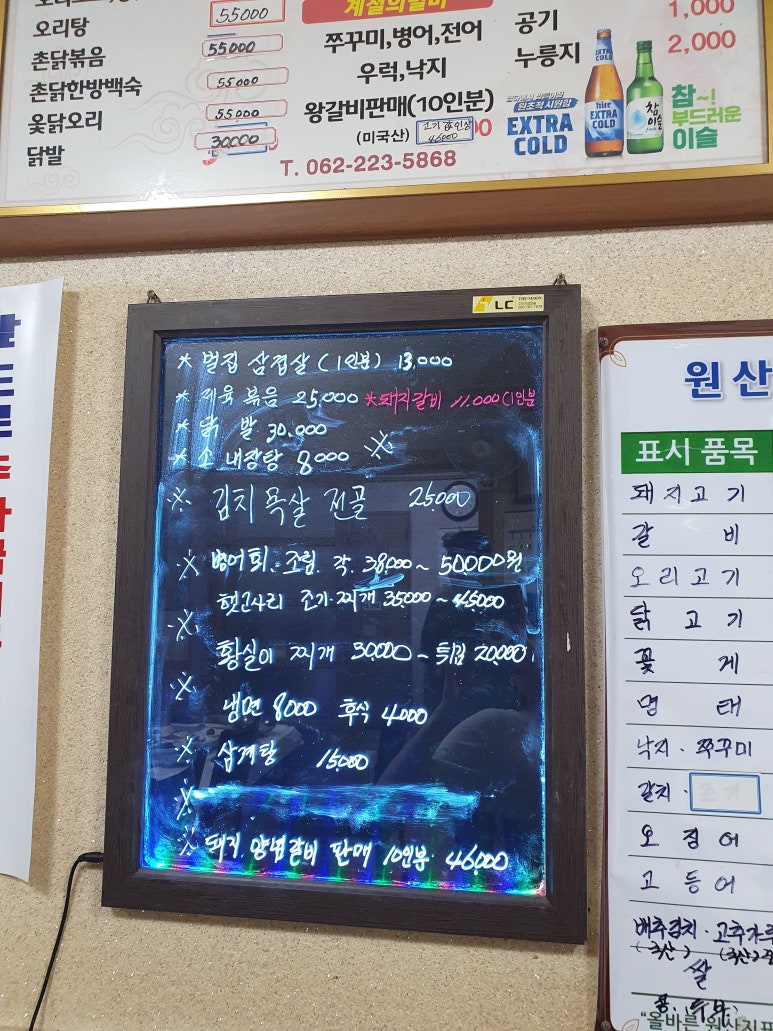 55000
오리탕 55000
촌닭볶음
촌닭한방백숙 55000
옻닭오리 55000
닭발 30000
계절의별미
쭈꾸미,병어,전어
우럭,낙지
왕갈비판매(10인분)
(미국산) 고기값인상 46000
공기 1,000
누룽지 2,000
원초적 시원함
EXTRA COLD
EXTRA COLD
hite EXTRA COLD
참이슬
참~!
부드러운
이슬
T. 062-223-5868
LC THE MOON
* 벌집 삼겹살 (1인분) 13.000
* 제육 볶음 25.000 *돼지갈비 11.000(1인분
* 닭 발 30.000
* 소 내장탕 8000 ※
※ 김치 목살 전골 25000
※ 병어회. 조림. 각. 38000~50000원
햇고사리 조기·찌개 35000~45000
※ 황실이 찌개 30000~튀김 20000
※ 냉면 8000 후식 4000
※ 삼계탕 15000
※
※ 돼지 양념갈비 판매 10인분 46000
원산
표시 품목
돼지고기
갈비
오리고기
닭고기
꽃게
명태
낙지·쭈꾸미
갈치·
오징어
고등어
배추김치·고추가루
(국산) (국산)
쌀
콩·두부
"올바른 원산지표